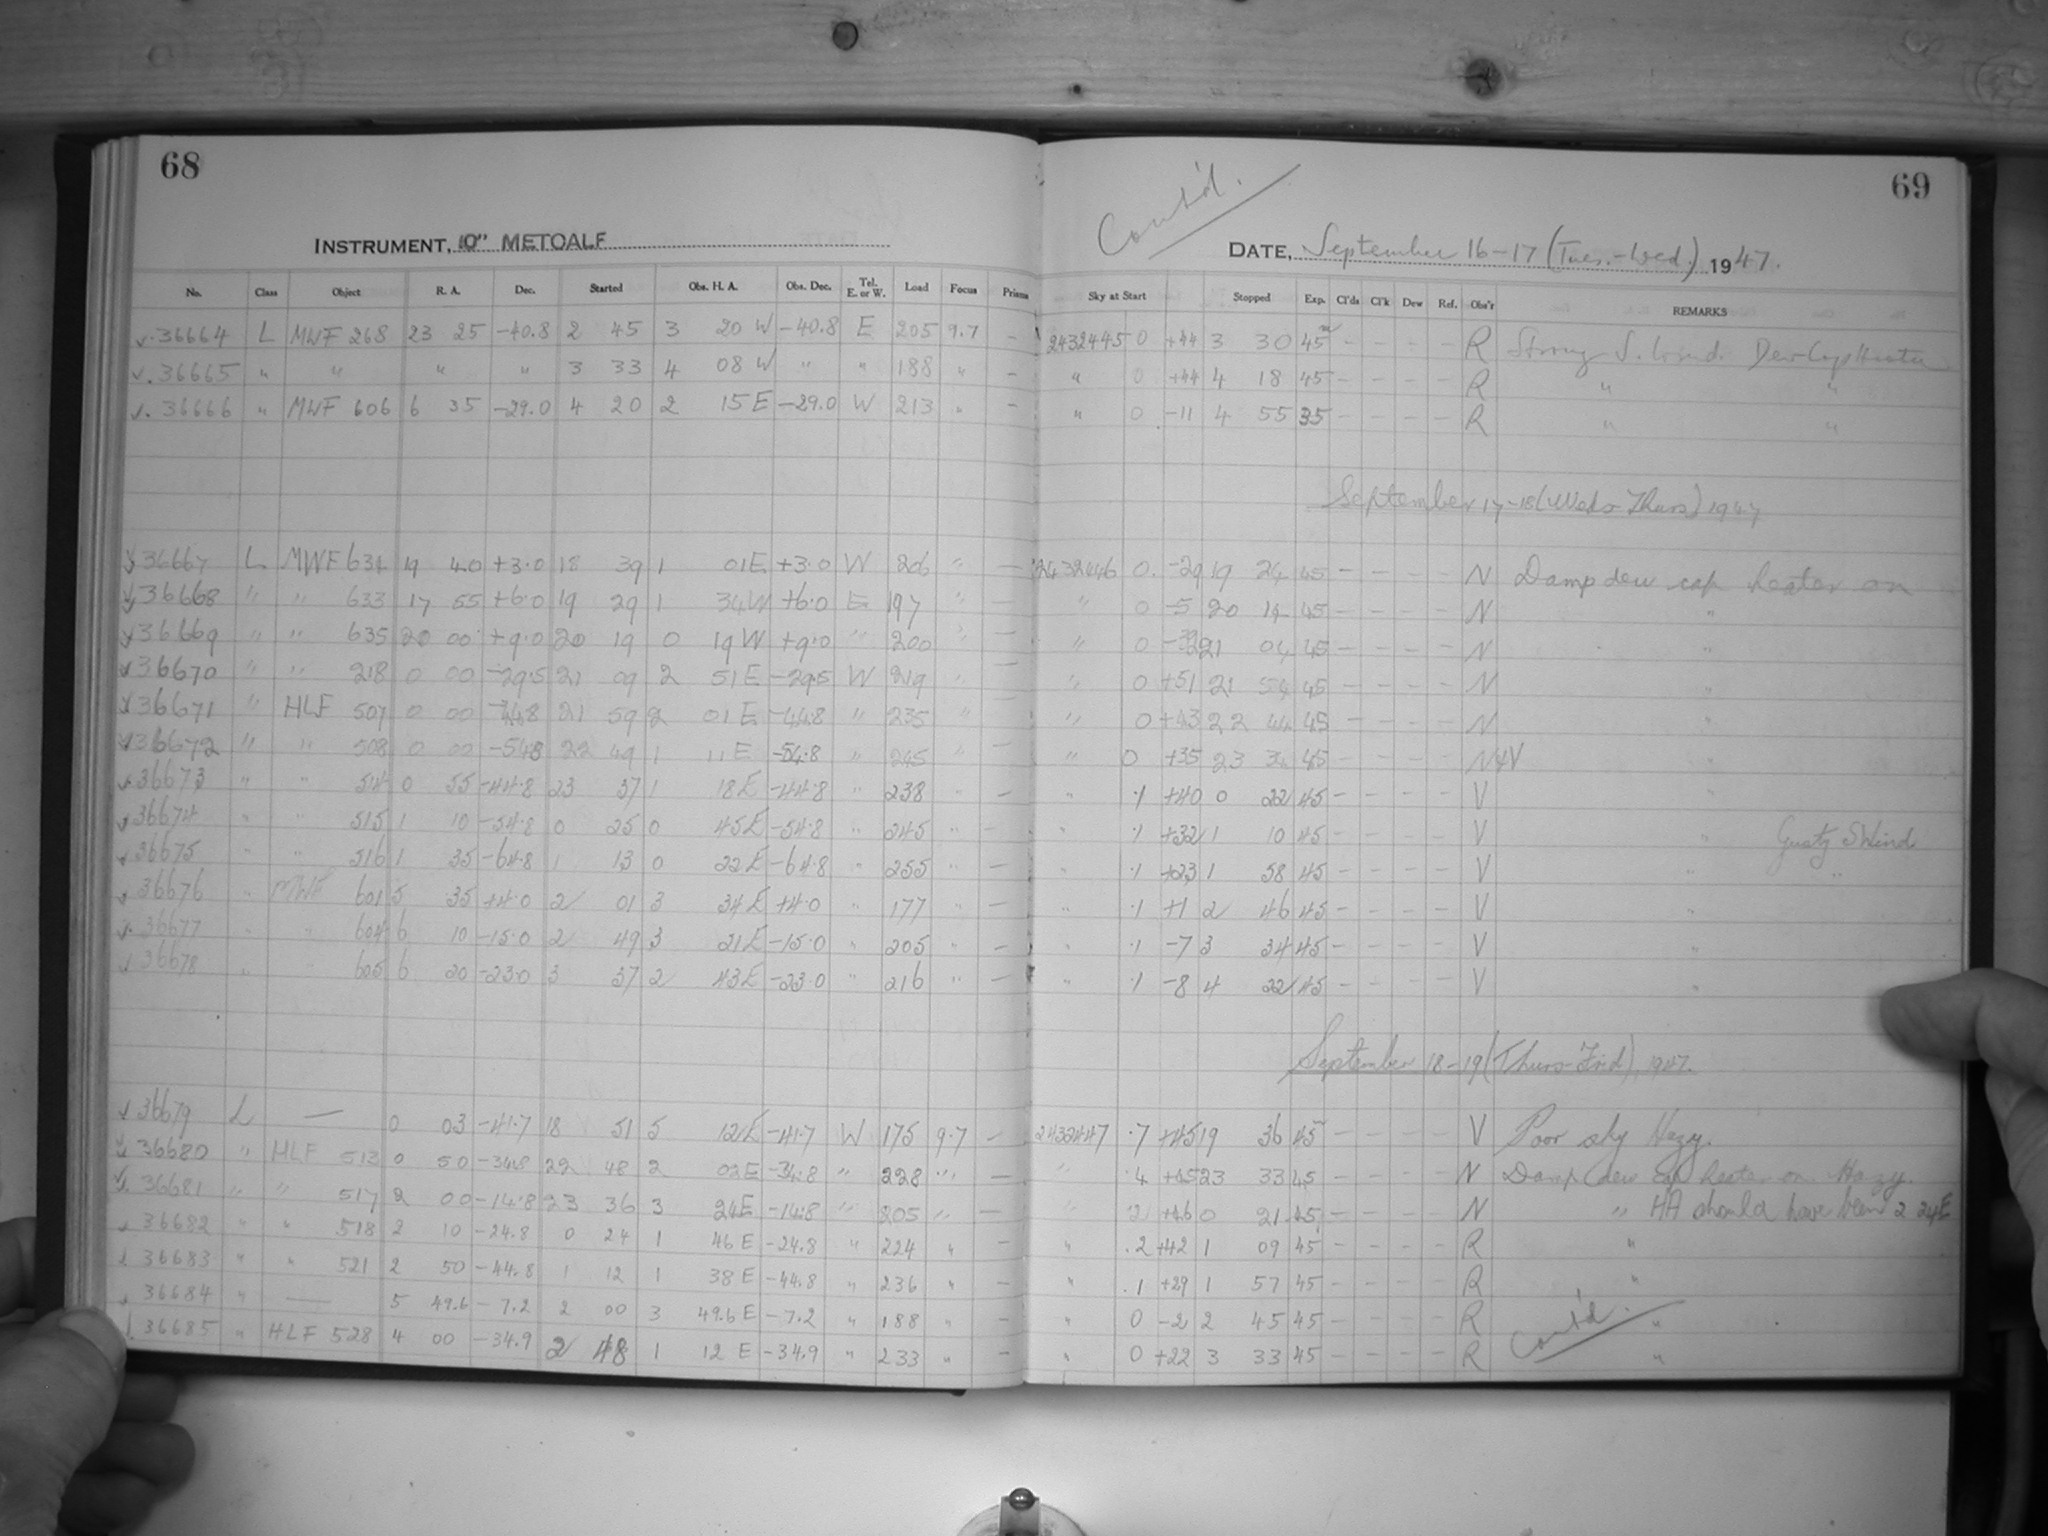 68
INSTRUMENT, 10" METCALF
No. Class Object R. A. Dec. Started Obs. H. A. Obs. Dec. Tel. E. or W. Load Focus Prism
✓.36664 L MWF 268 23 25 -40.8 2 45 3 20 W -40.8 E 205 9.7 -
✓.36665 " " " " 3 33 4 08 W " " 188 " -
✓.36666 " MWF 606 6 35 -29.0 4 20 2 15 E -29.0 W 213 " -
✓36667 L MWF 631 19 40 +3.0 18 39 1 01E +3.0 W 206 " -
✓36668 " " 633 17 55 +6.0 19 29 1 34W +6.0 E 197 " -
✓36669 " " 635 20 00 +9.0 20 19 0 19W +9.0 " 200 " -
✓36670 " " 218 0 00 -29.5 21 09 2 51E -29.5 W 219 " -
✓36671 " HLF 507 0 00 -44.8 21 59 2 01E -44.8 " 235 "
✓36672 " " 508 0 00 -54.8 22 49 1 11E -54.8 " 245 " -
✓36673 " " 514 0 55 -44.8 23 37 1 18E -44.8 " 238 " -
✓36674 " " 515 1 10 -54.8 0 25 0 45E -54.8 " 245 " -
✓36675 " " 516 1 35 -64.8 1 13 0 22E -64.8 " 255 " -
✓36676 " MWF 601 5 35 +4.0 2 01 3 34E +4.0 " 177 " -
✓36677 " " 604 6 10 -15.0 2 49 3 21E -15.0 " 205 " -
✓36678 " " 605 6 20 -23.0 3 37 2 43E -23.0 " 216 " -
✓36679 L — 0 03 -41.7 18 51 5 12E -41.7 W 175 9.7 -
✓36680 " HLF 513 0 50 -34.8 22 48 2 02E -34.8 " 228 " -
✓36681 " " 517 2 00 -14.8 23 36 3 24E -14.8 " 205 " -
✓36682 " " 518 2 10 -24.8 0 24 1 46E -24.8 " 224 " -
✓36683 " " 521 2 50 -44.8 1 12 1 38E -44.8 " 236 " -
✓36684 " — 5 49.6 -7.2 2 00 3 49.6E -7.2 " 188 " -
✓36685 " HLF 528 4 00 -34.9 2 48 1 12E -34.9 " 233 " -
Cont'd.
69
DATE, September 16-17 (Tues.-Wed.) 1947.
Sky at Start Stopped Exp. Cl'ds Cl'k Dew Ref. Obs'r REMARKS
2432445 0 +44 3 30 45m - - - - R Strong S. wind. Dew Cap Heater
" 0 +44 4 18 45 - - - - R " "
" 0 -11 4 55 35 - - - - R " "
September 17-18 (Weds-Thurs) 1947
2432446 0. -29 19 24 45 - - - - N Damp dew cap heater on
" 0 -5 20 14 45 - - - - N "
" 0 21 04 45 - - - - N "
" 0 +51 21 54 45 - - - - N "
" 0 +43 22 44 45 - - - - N "
" 0 +35 23 34 45 - - - - N&V "
" .1 +40 0 22 45 - - - - V "
" .1 +32 1 10 45 - - - - V " Gusty S Wind
" .1 +23 1 58 45 - - - - V " "
" .1 +1 2 46 45 - - - - V "
" .1 -7 3 34 45 - - - - V "
" .1 -8 4 22 45 - - - - V "
September 18-19 (Thurs-Frid), 1947.
2432447 .7 +45 19 36 45 - - - - V Poor sky Hazy.
" .4 +45 23 33 45 - - - - N Damp dew cap heater on Hazy.
" .2 +46 0 21 45 - - - - N " HA should have been 2 24E
" .2 +42 1 09 45 - - - - R "
" .1 +29 1 57 45 - - - - R "
" 0 -2 2 45 45 - - - - R "
" 0 +22 3 33 45 - - - - R "
Cont'd.